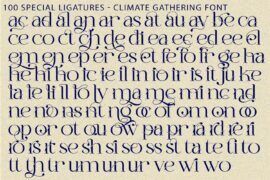 100 SPECIAL LIGATURES - CLIMATE GATHERING FONT
ac ad al an ar as at au ay be ca
ce co ct ch de di ea ec ed ee el
em en ep er es et fe fo fi fr ge ha
he hi ho ic te il in fo ir is it ju ke
la le ti ll ly ma me mi nc nd
ne no ns nt ng oc of om on oo
op or ot ou ow pa pr ra rd re ri
ro rs rt se sh si so ss st ta te ti to
tt th tr um un ur ve wi wo